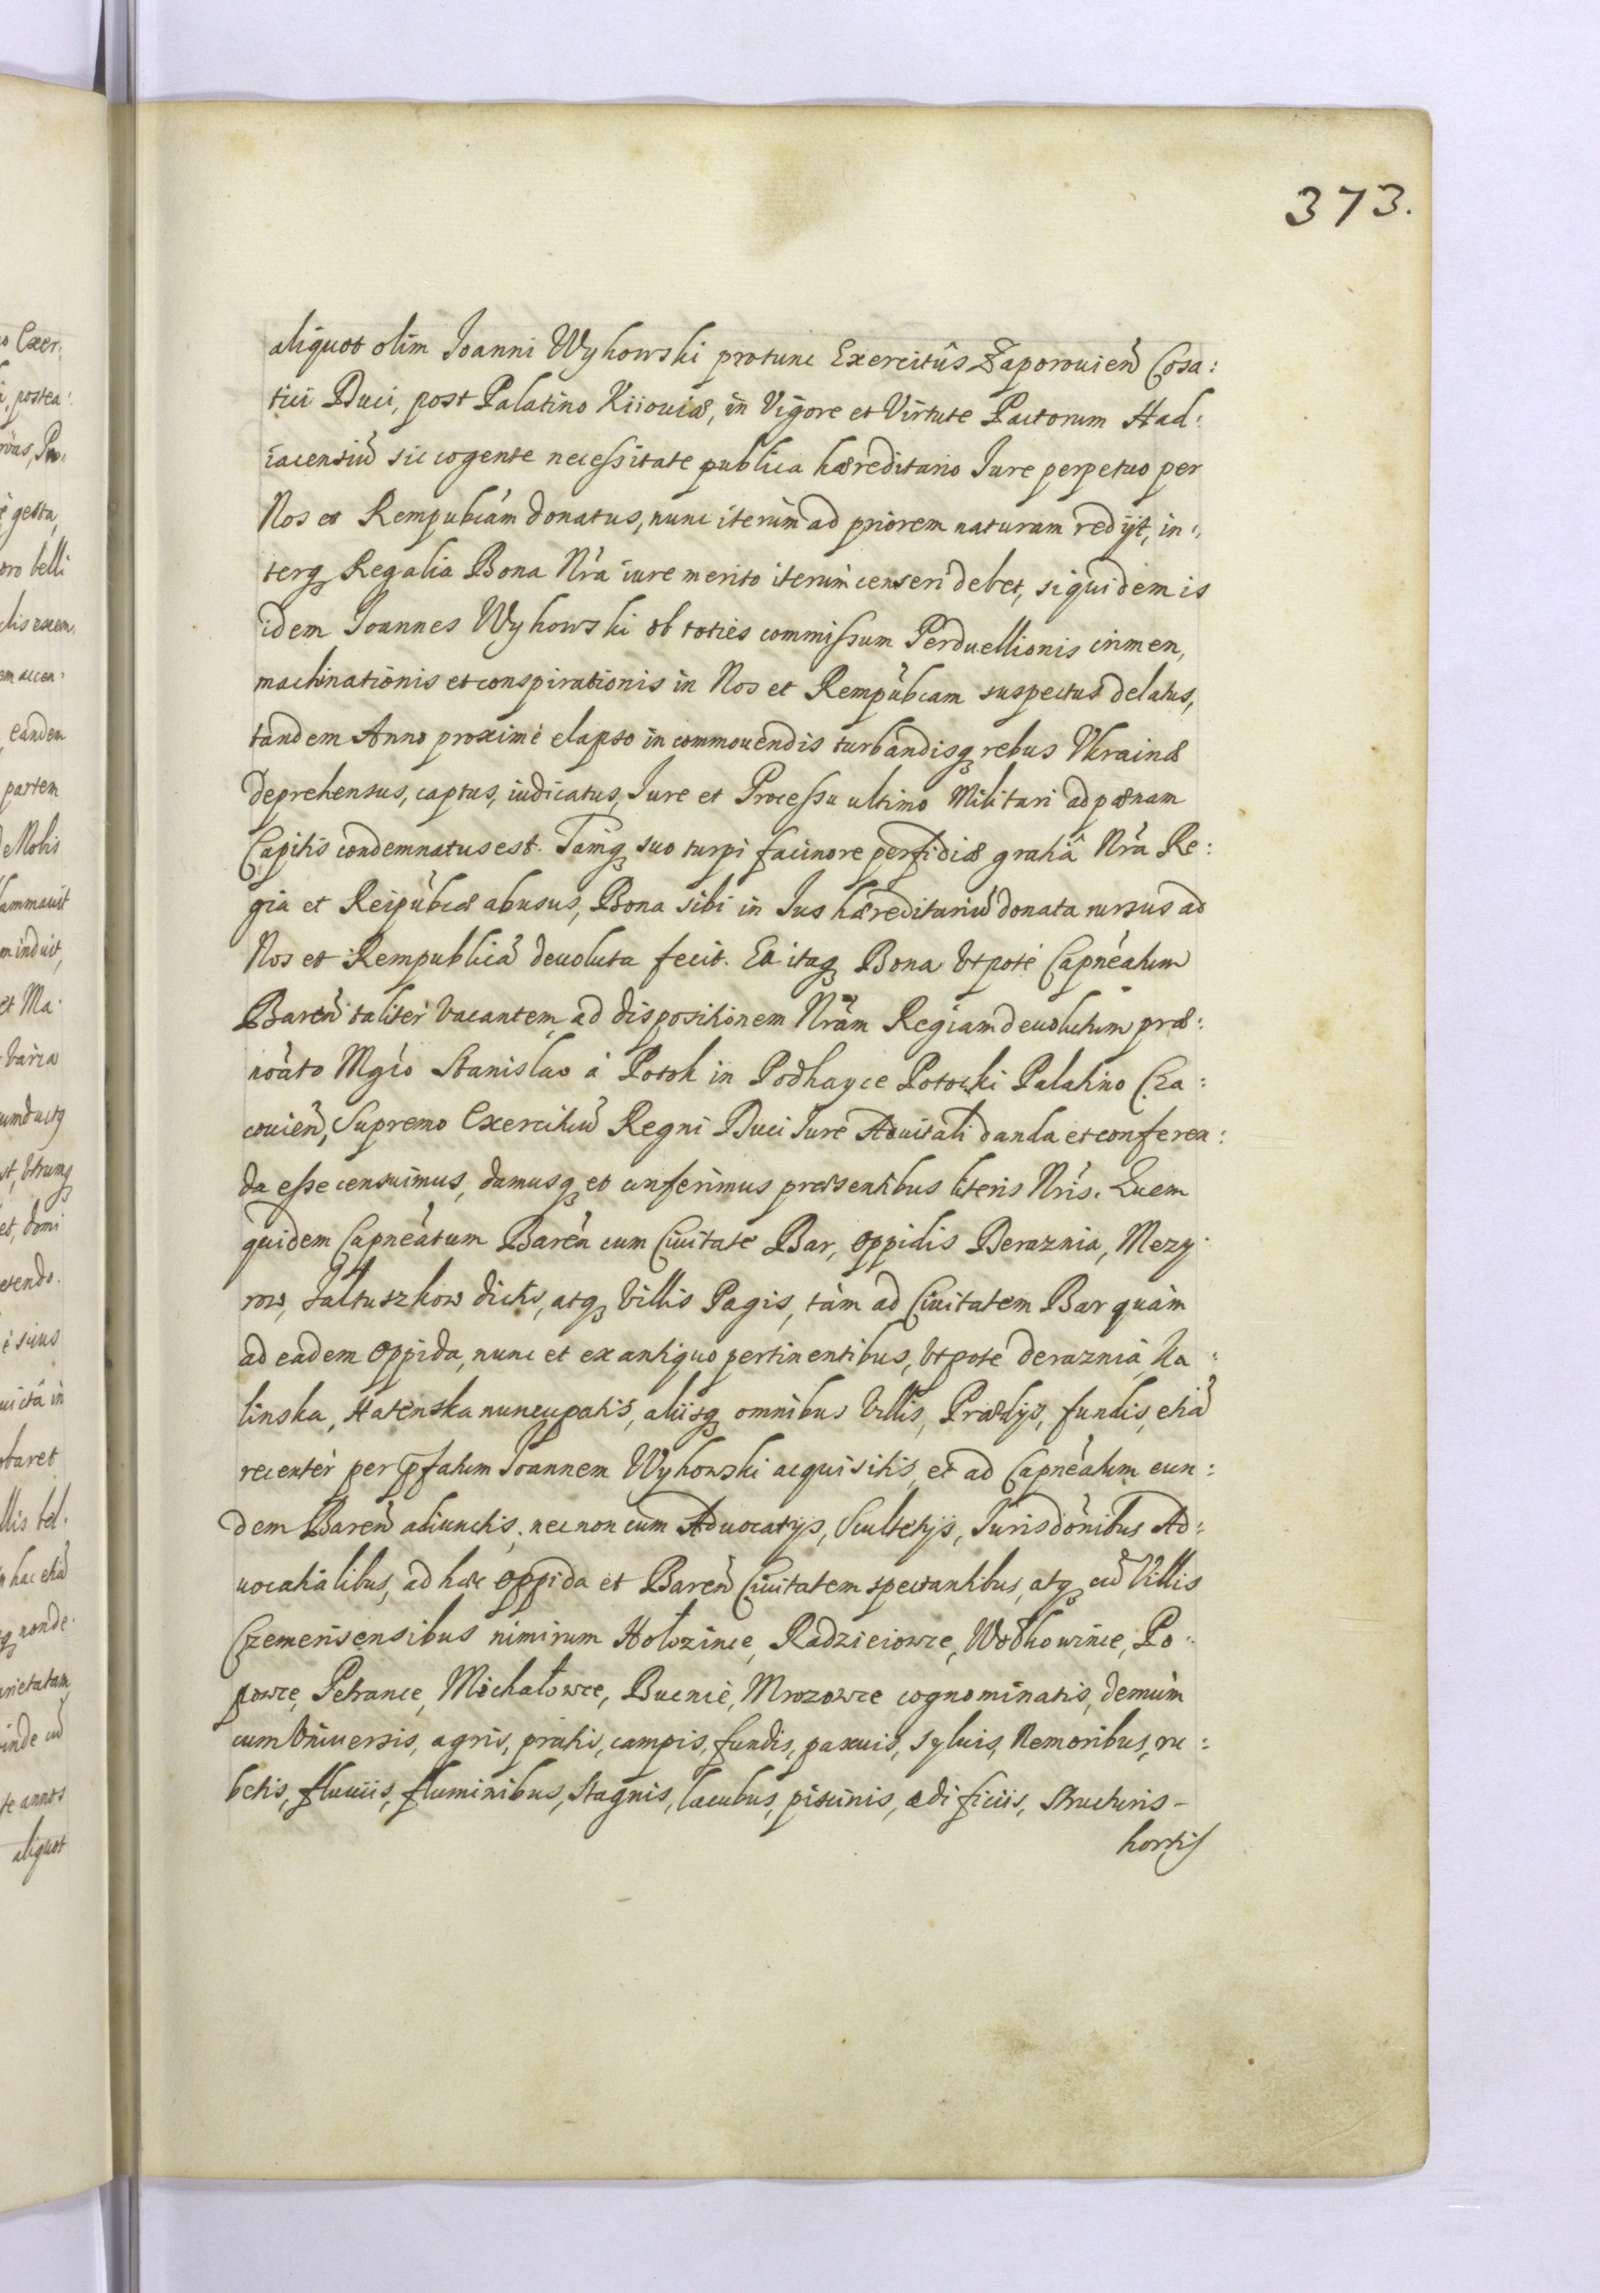 373.
aliquot olim Joanni Wyhowski protunc Exercitûs Zaporouień Cosa:
tici Duci, post Palatino Kiiouiæ, in Vigore et Virtute Pactorum Had:
iacensiu̇ sic cogente necessitate publica hæreditario Jure perpetuo per
Nos et Rempub̀cam donatus, nunc iterùm ad priorem naturam redijt, in:
terq Regalia Bona Nrà iure merito iterùm censeri debet, siquidem is
idem Joannes Wyhowski ob toties commissum Perduellionis crimen,
machinationis et conspirationis in Nos et Rempùbcam suspectus delatus,
tandem Anno proximè elapso in commouendis turbandisq rebus Vkrainæ
deprehensus, captus, iudicatus, Jure et Processu ultimo Militari ad pœnam
Capitis condemnatus est. Tamq suo turpi facinore perfidiæ gratiâ Nrà Re:
gia et Reipùbcæ abusus, Bona sibi in Jus hæreditariu̇ donata rursus ad
Nos et Rempublicȧ deuoluta fecit. Ea itaq Bona Vtpote Capneátum
Bareń taliter Vacantem, ad dispositionem Nràm Regiam deuolutum præ:
noáto Mgío Stanislao à Potok in Podhayce Potocki Palatino Cra:
couień, Supremo Exercituu̇ Regni Duci Jure Aduitali danda et conferen:
da esse censuimus, damusq et conferimus præsentibus literis Nrìs. Quem
quidem Capneátum Bareń cum Ciuitate Bar, oppidis Deraznia, Mezy:
row, Jaltuszkow dictis, atq Villis Pagis, tàm ad Ciuitatem Bar quàm
ad eadem Oppida, nunc et ex antiquo pertinentibus, Vtpote deraznia, Ka:
linska, Hatenska nuncupatis, aliisq omnibus Villis, Prædijs, fundis, etiȧ
recentèr per pfatum Joannem Wyhowski acquisitis, et ad Capneátum eun:
dem Bareń adiunctis, nec non cum Aduocatijs, Scultetijs, Jurisdònibus Ad:
uocatialibus, ad hæc oppida et Bareń Ciuitatem spectantibus, atq cu̇ Villis
Czemerisensibus nimirum Hołozińce, Radzieiowce, Wołkowińce, Po:
powce, Petrance, Michałowce, Bucnie, Mrozowce cognominatis, demùm
cum Vniuersis, agris, pratis, campis, fundis, pascuis, syluis, Nemoribus, ru:
betis, fluuiis, fluminibus, stagnis, lacubus, piscinis, ædificiis, structuris -
hortis